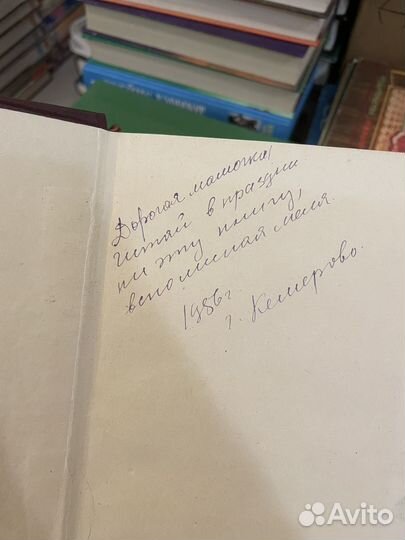 Дорогая мамочка,
читай в праздни
ки эту книгу,
вспоминая меня.
1986г.
г. Кемерово.
Avito